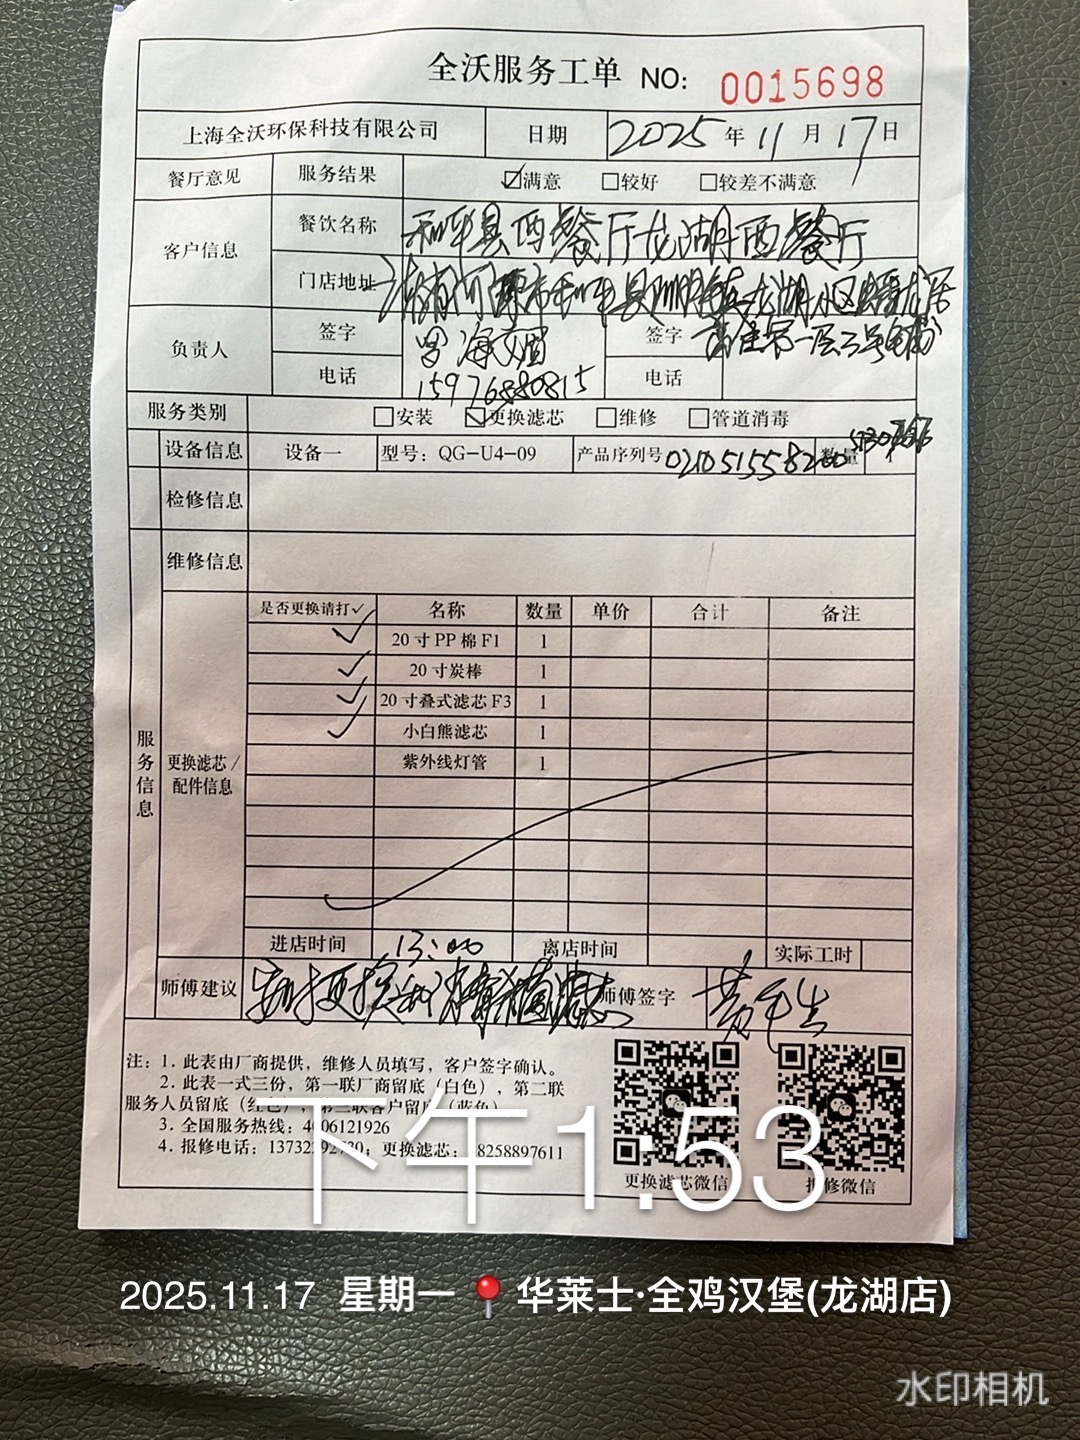 全沃服务工单 NO: 0015698
上海全沃环保科技有限公司 日期 2025年11月17日
餐厅意见 服务结果 ☑满意 □较好 □较差不满意
客户信息 餐饮名称 和平县西餐厅龙湖西餐厅
门店地址
负责人 签字 签字
电话 15976880815 电话
服务类别 □安装 ☑更换滤芯 □维修 □管道消毒
设备信息 设备一 型号：QG-U4-09 产品序列号 数量 1
检修信息
维修信息
服务信息
更换滤芯/
配件信息
是否更换请打✓ 名称 数量 单价 合计 备注
✓ 20寸PP棉F1 1
✓ 20寸炭棒 1
✓ 20寸叠式滤芯F3 1
✓ 小白熊滤芯 1
紫外线灯管 1
进店时间 13:00 离店时间 实际工时
师傅建议 师傅签字
注：1. 此表由厂商提供，维修人员填写，客户签字确认。
2. 此表一式三份，第一联厂商留底（白色），第二联
服务人员留底（红色），第三联客户留底（蓝色）
3. 全国服务热线：4006121926
4. 报修电话： 更换滤芯： 8258897611
更换滤芯微信 报修微信
下午1:53
2025.11.17 星期一 📍华莱士·全鸡汉堡(龙湖店)
水印相机